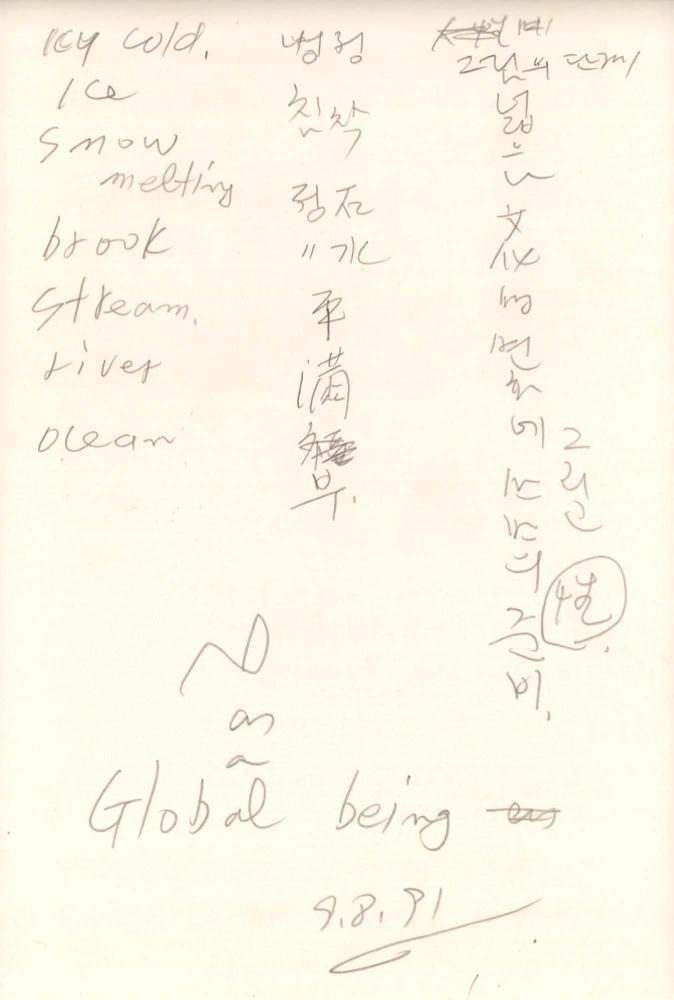 Icy cold.
Ice
Snow
melting
brook
stream.
river
ocean
냉정
침착
평
滿
부.
그림의 단계
넓
은
文
化
的
변
화
에
의
준
비.
그
리
고
性
as
a
Global being
9.8.91